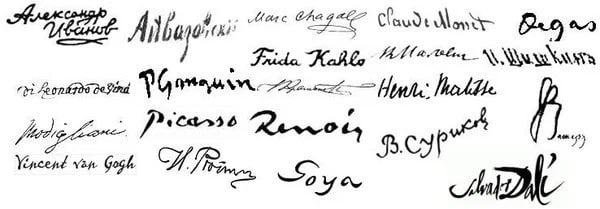 Александр
Иванов
Айвазовскій
Marc Chagall
Claude Monet
Degas
Frida Kahlo
И. Шишкинъ
di Leonardo da Vinci
P Gauguin
Henri. Matisse
Modigliani
Picasso
Renoir
В. Суриков
Vincent van Gogh
Goya
Salvador Dalí